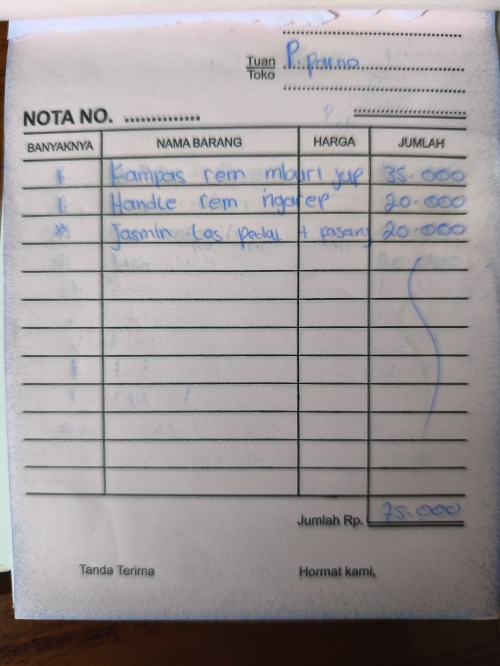 Tuan P. parno
Toko
NOTA NO. ....................
BANYAKNYA NAMA BARANG HARGA JUMLAH
1 Kampas rem mburi jup 35.000
1 Handle rem ngarep 20.000
* Jasmin Las pedal + pasang 20.000
Jumlah Rp. 75.000
Tanda Terima Hormat kami,